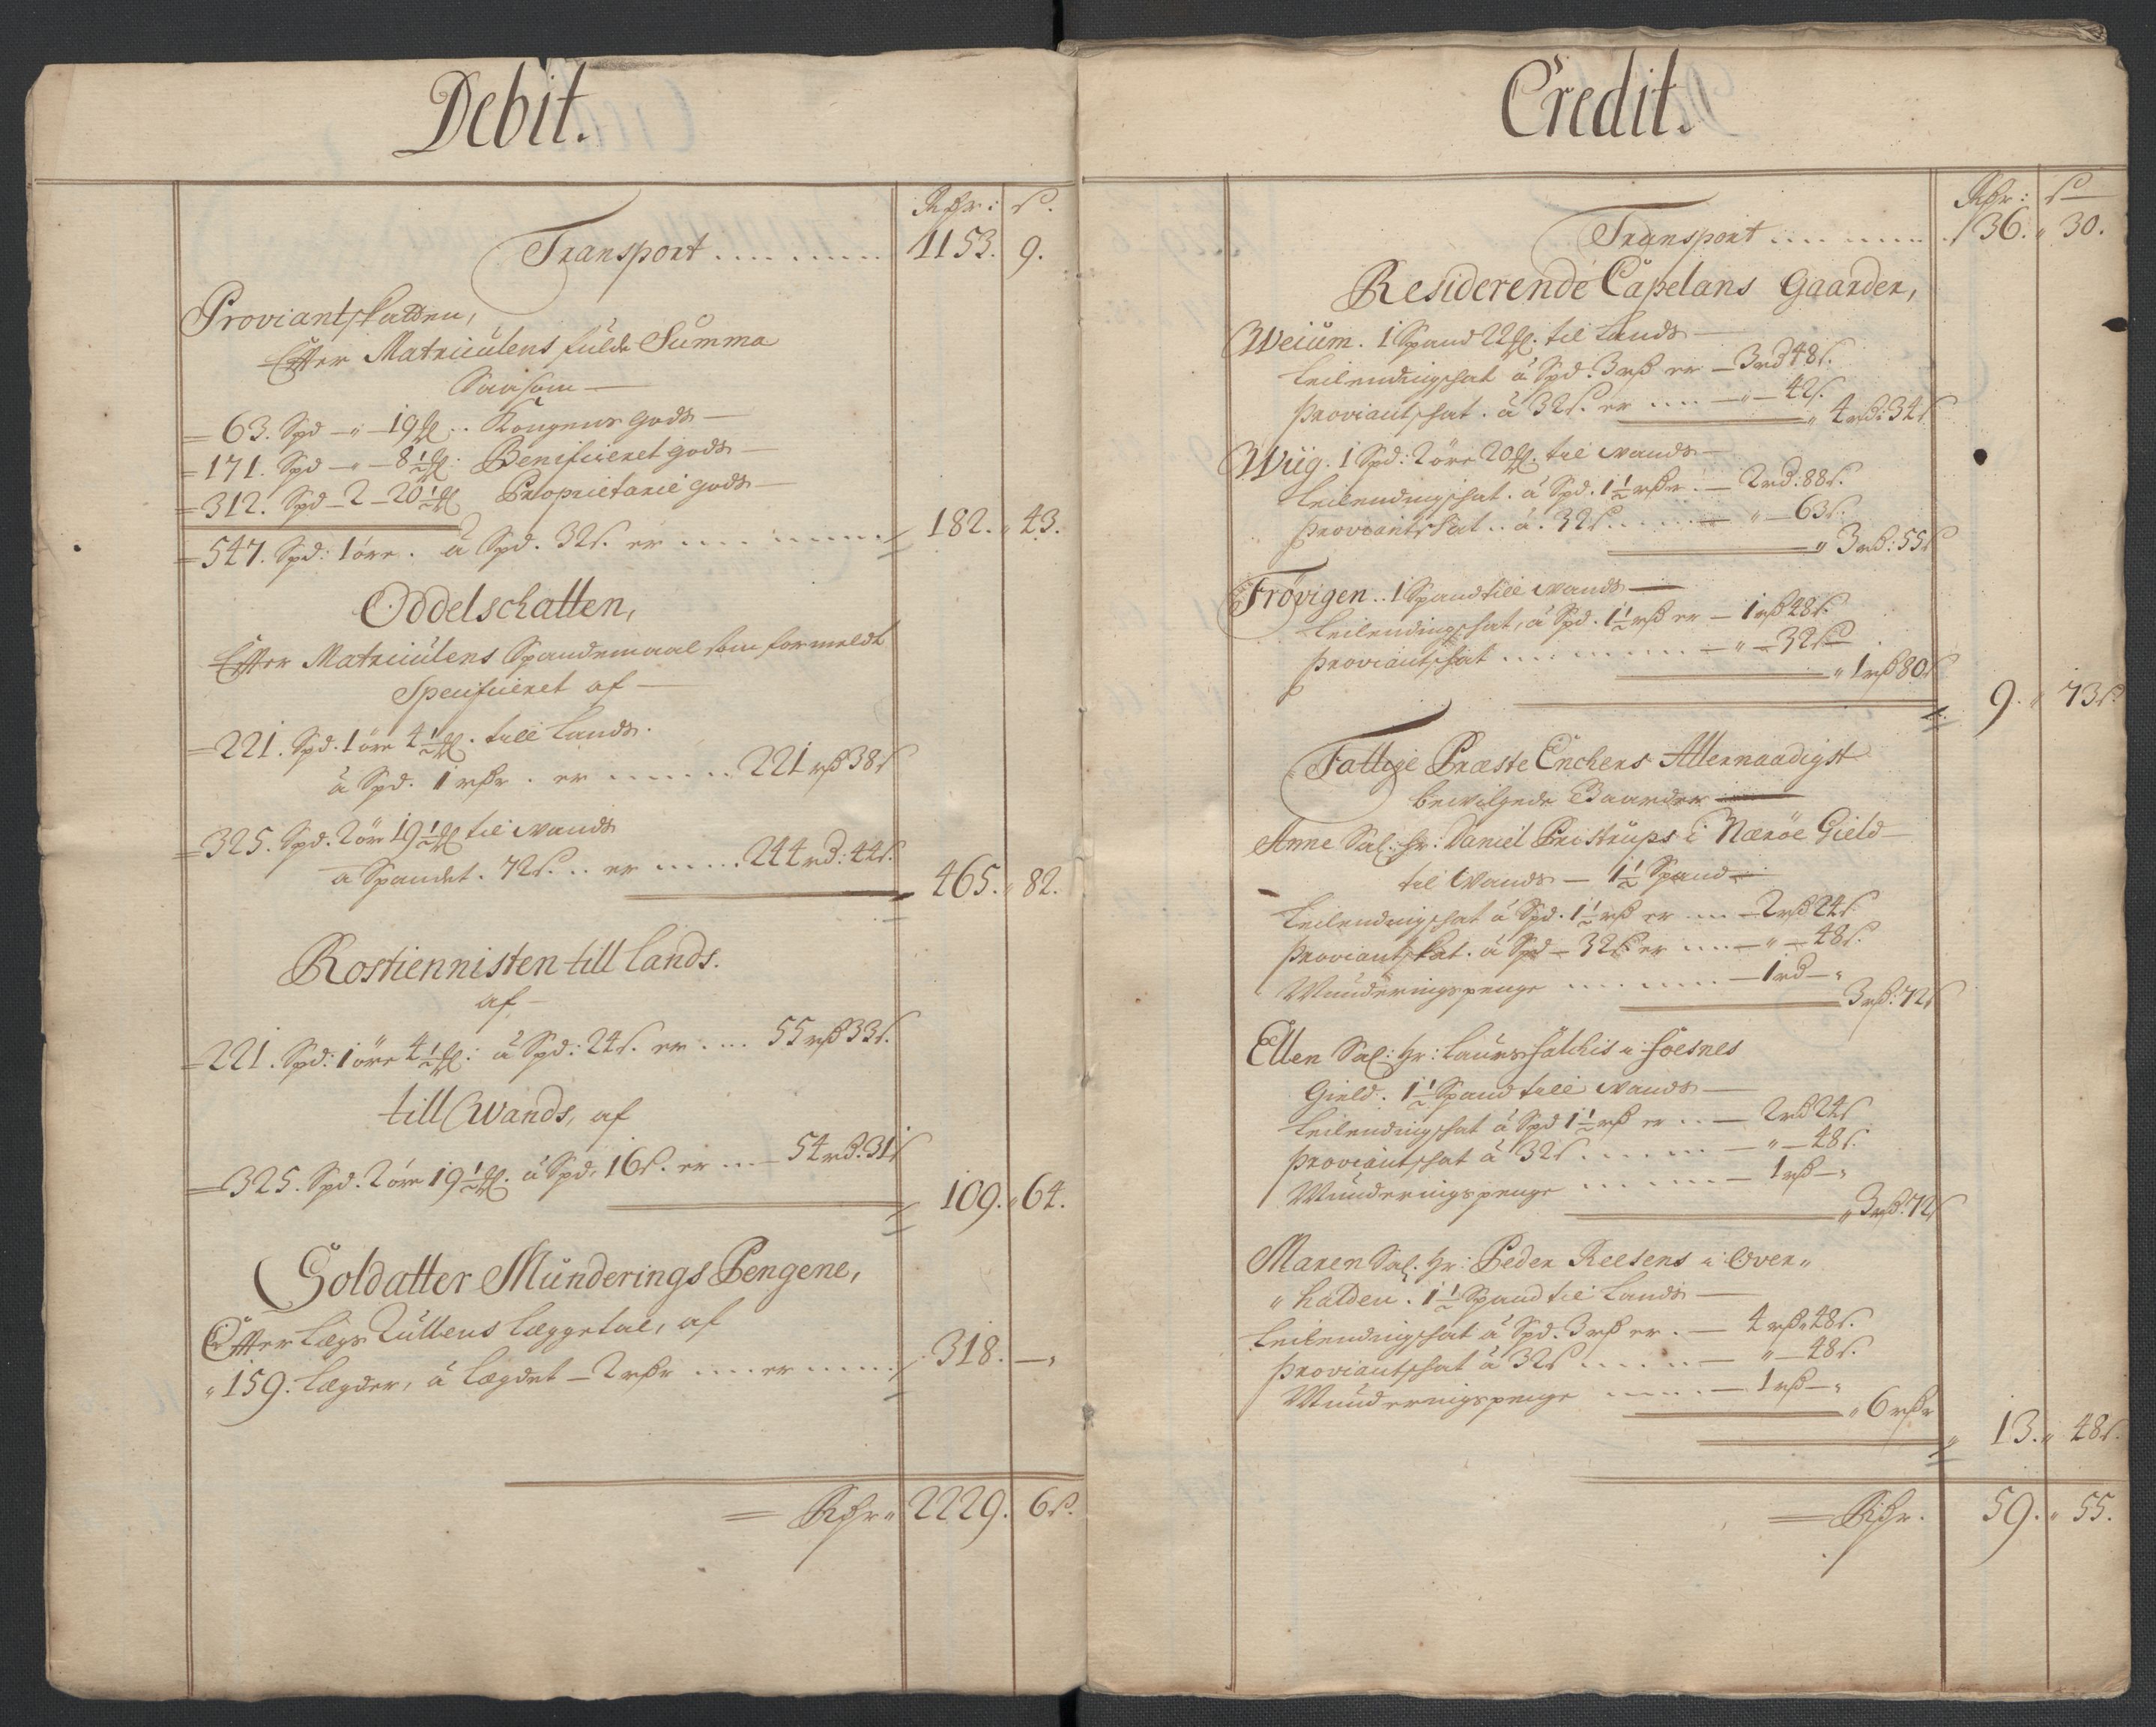 Debit.
Rdr: ß.
Transport 1153. 9.
Proviantskatten,
Effter Matriculens fulde Summa
Saasom
63. Spd — " — 19 ml. Kongens gods
171. Spd — " — 8½ ml: Beneficieret gods
312. Spd — 2 — 20½ ml Proprietarie gods
547. Spd: 1 öre. à Spd. 32 ß. er 182. 43.
Oddelschatten,
Effter Matriculens Spandemaal som formeldt
Specificeret af
221. Spd. 1 öre 4½ ml. till Lands.
à Spd. 1 rdr. er 221 rd 38 ß
325. Spd. 2 öre 19½ ml til Wands
a Spandet. 72 ß. er 244 rd: 44 ß. 465. 82.
Rostiennisten till Lands.
af
221. Spd: 1 öre 4½ ml: à Spd: 24 ß. er 55 rd 33 ß.
till Wands, af
325. Spd. 2 öre 19½ ml. à Spd. 16 ß. er 54 rd. 31 ß 109. 64.
Soldatter Munderings Pengene,
Effter Lægs Rullens Læggetal, af
159. Lægder, à Lægdet — 2 rdr er 318. — "
Rdr 2229. 6 ß.
Credit.
Rdr: ß
Transport 36. 30.
Residerende Capelans Gaarder,
Weium. 1 Spand 22 ml. til Lands
Leilendingschat à Spd. 3 rd er — 3 rd 48 ß.
Proviantschat. à 32 ß. er — " — 42 ß.
" 4 rd: 34 ß
Wiig. 1 Spd: 2 öre 20 ml. til Wands
Leilendingschat. à Spd. 1½ rdr. — 2 rd: 88 ß.
Proviantschat.. à. 32 ß — " — 63 ß.
" 3 rd: 55 ß
Frøvigen.. 1 Spand till Wands
Leilendingschat, à Spd. 1½ rd er — 1 rd 48 ß.
Proviantschat — " — 32 ß
" 1 rd 80 ß
9. 73 ß
Fattige Præste Enchers Allernaadigst
bevilgede Gaarder
Anne Sal: Hr: Daniel Bristrups i Nærøe Gield
til Wands — 1½ Spand
Leilendingschat à Spd. 1½ rd er — 2 rd 24 ß.
Proviantschat. à Spd — 32 ß er — " — 48 ß.
Munderingspenge — 1 rd — "
3 rd: 72 ß
Ellen Sal: Hr: Laurs i Foesnes
Gield. 1½ Spand till Wands
Leilendingschat à Spd 1½ rd er — 2 rd 24 ß
Proviantschat à 32 ß — " — 48 ß.
Munderingspenge — 1 rd — "
" 3 rd: 72 ß
Maren Sal. Hr: Peder Reetsens i Over„
„halden. 1½ Spand til Lands
Leilendingschat à Spd. 3 rd er. — 4 rd 48 ß.
Proviantschat à 32 ß — " — 48 ß.
Munderingspenge — 1 rd — "
" 6 rdr
13. 48 ß.
Rdr. 59. 55.